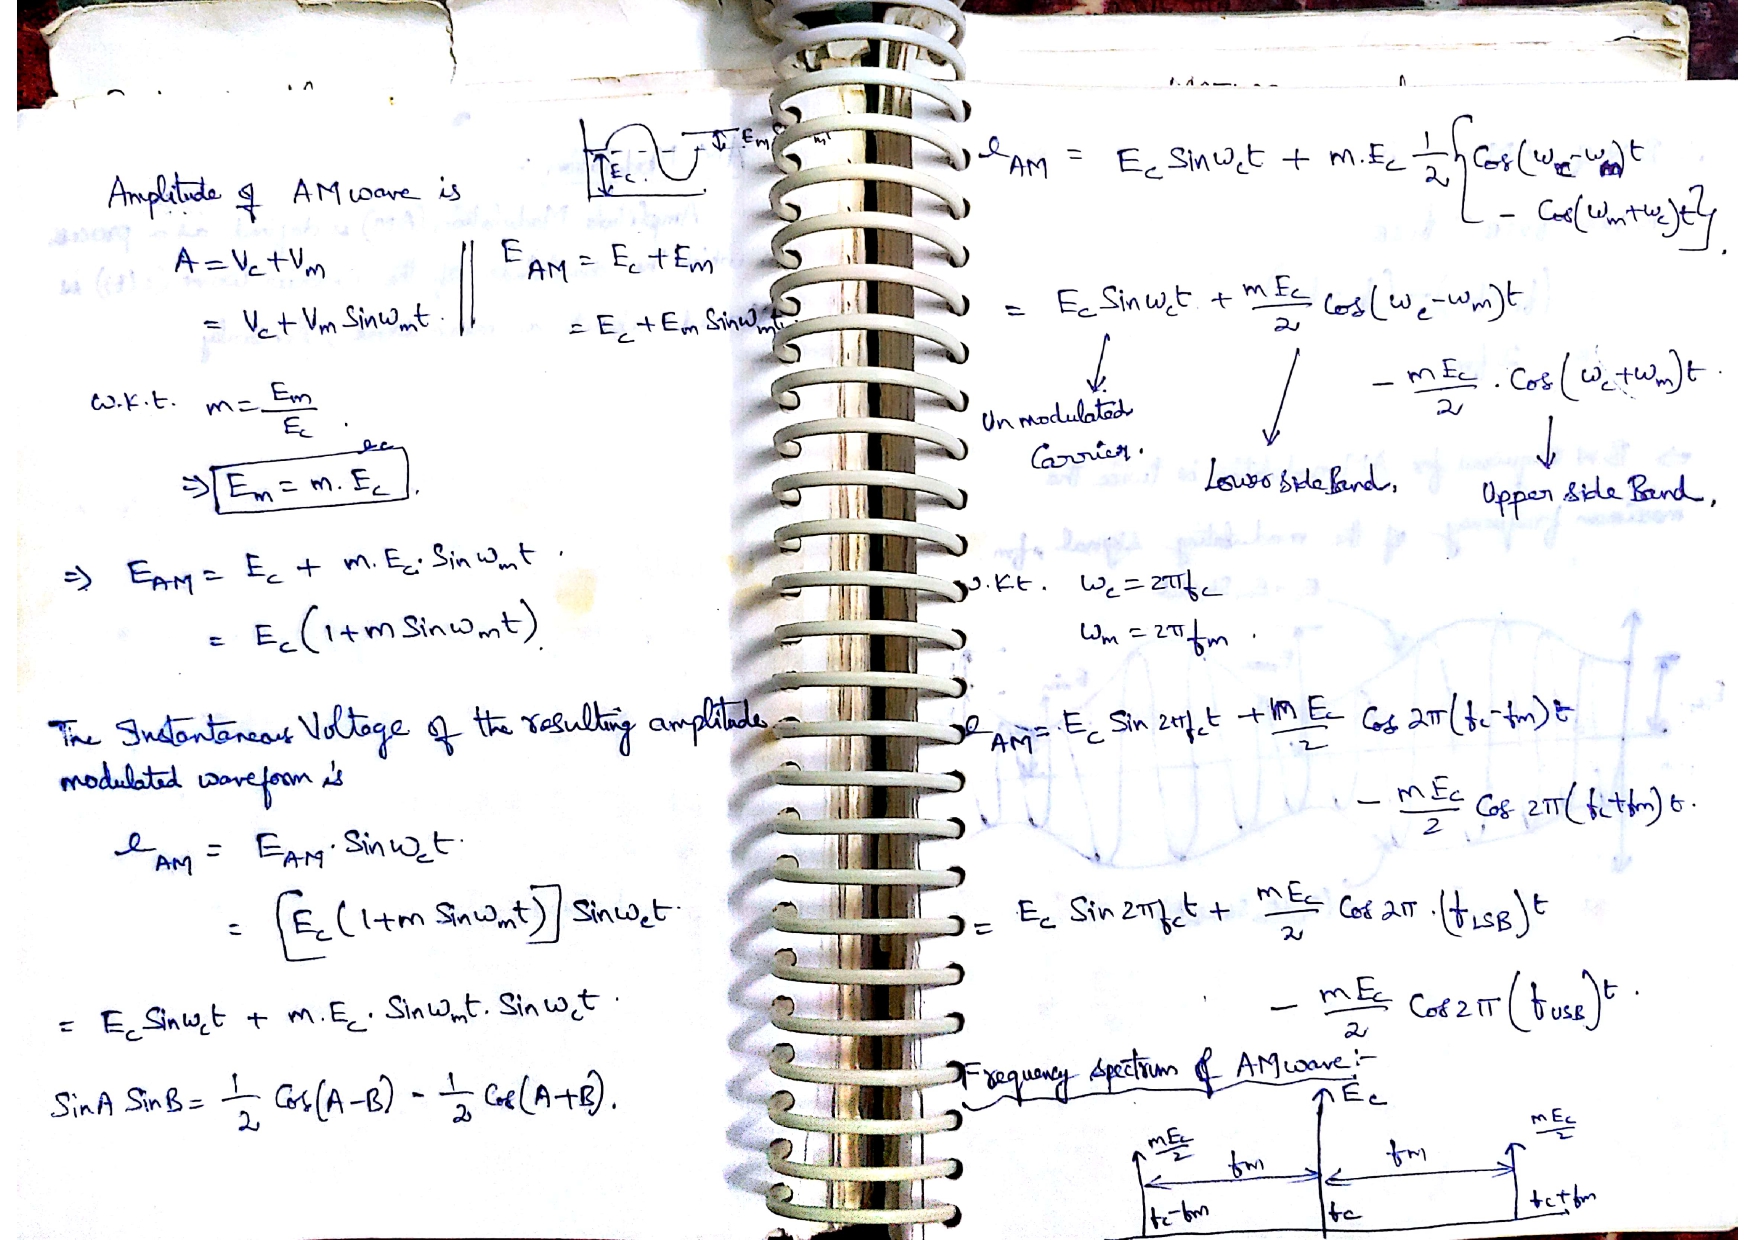 Amplitude of AM wave is
Em
Ec
A = Vc + Vm
= Vc + Vm Sinωmt.
EAM = Ec + Em
= Ec + Em Sinωmt
W.K.t. m = Em/Ec .
⇒ Em = m. Ec .
⇒ EAM = Ec + m. Ec. Sinωmt .
= Ec (1 + m Sinωmt).
The Instantaneous Voltage of the resulting amplitude
modulated waveform is
eAM = EAM. Sinωct.
= [Ec (1 + m Sinωmt)] Sinωct.
= Ec Sinωct + m. Ec. Sinωmt. Sinωct .
SinA SinB = 1/2 Cos(A-B) - 1/2 Cos(A+B).
eAM = Ec Sinωct + m.Ec 1/2 { Cos(ωc-ωm)t
- Cos(ωm+ωc)t }.
= Ec Sinωct + mEc/2 Cos(ωc-ωm)t
- mEc/2 . Cos(ωc+ωm)t .
Unmodulated
Carrier.
Lower side Band,
Upper side Band,
W.K.t. ωc = 2πfc
ωm = 2πfm .
eAM = Ec Sin 2πfct + mEc/2 Cos 2π(fc-fm)t
- mEc/2 Cos 2π(fc+fm)t.
= Ec Sin 2πfct + mEc/2 Cos 2π.(fLSB)t
- mEc/2 Cos 2π(fUSB)t .
Frequency spectrum of AM wave:-
Ec
mEc/2
mEc/2
fm
fm
fc-fm
fc
fc+fm